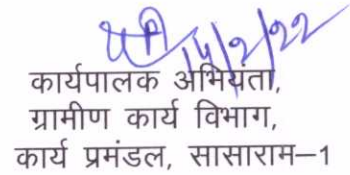 14/2/22
कार्यपालक अभियंता,
ग्रामीण कार्य विभाग,
कार्य प्रमंडल, सासाराम–1